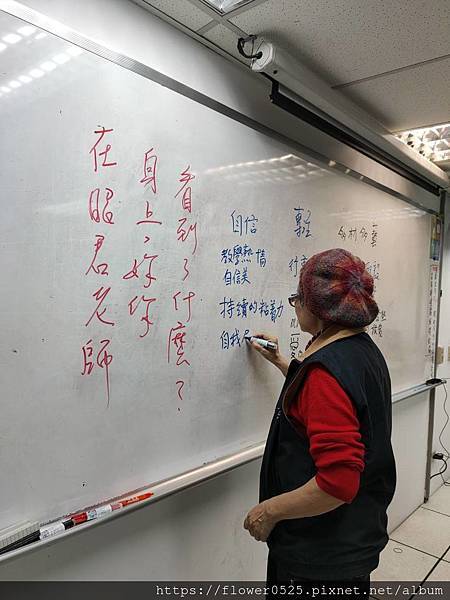 在昭君老師
身上，妳你
看到了什麼？
自信
教學熱情
自信美
持續的粘著力
自我
多材多藝
https://flower0525.pixnet.net/album